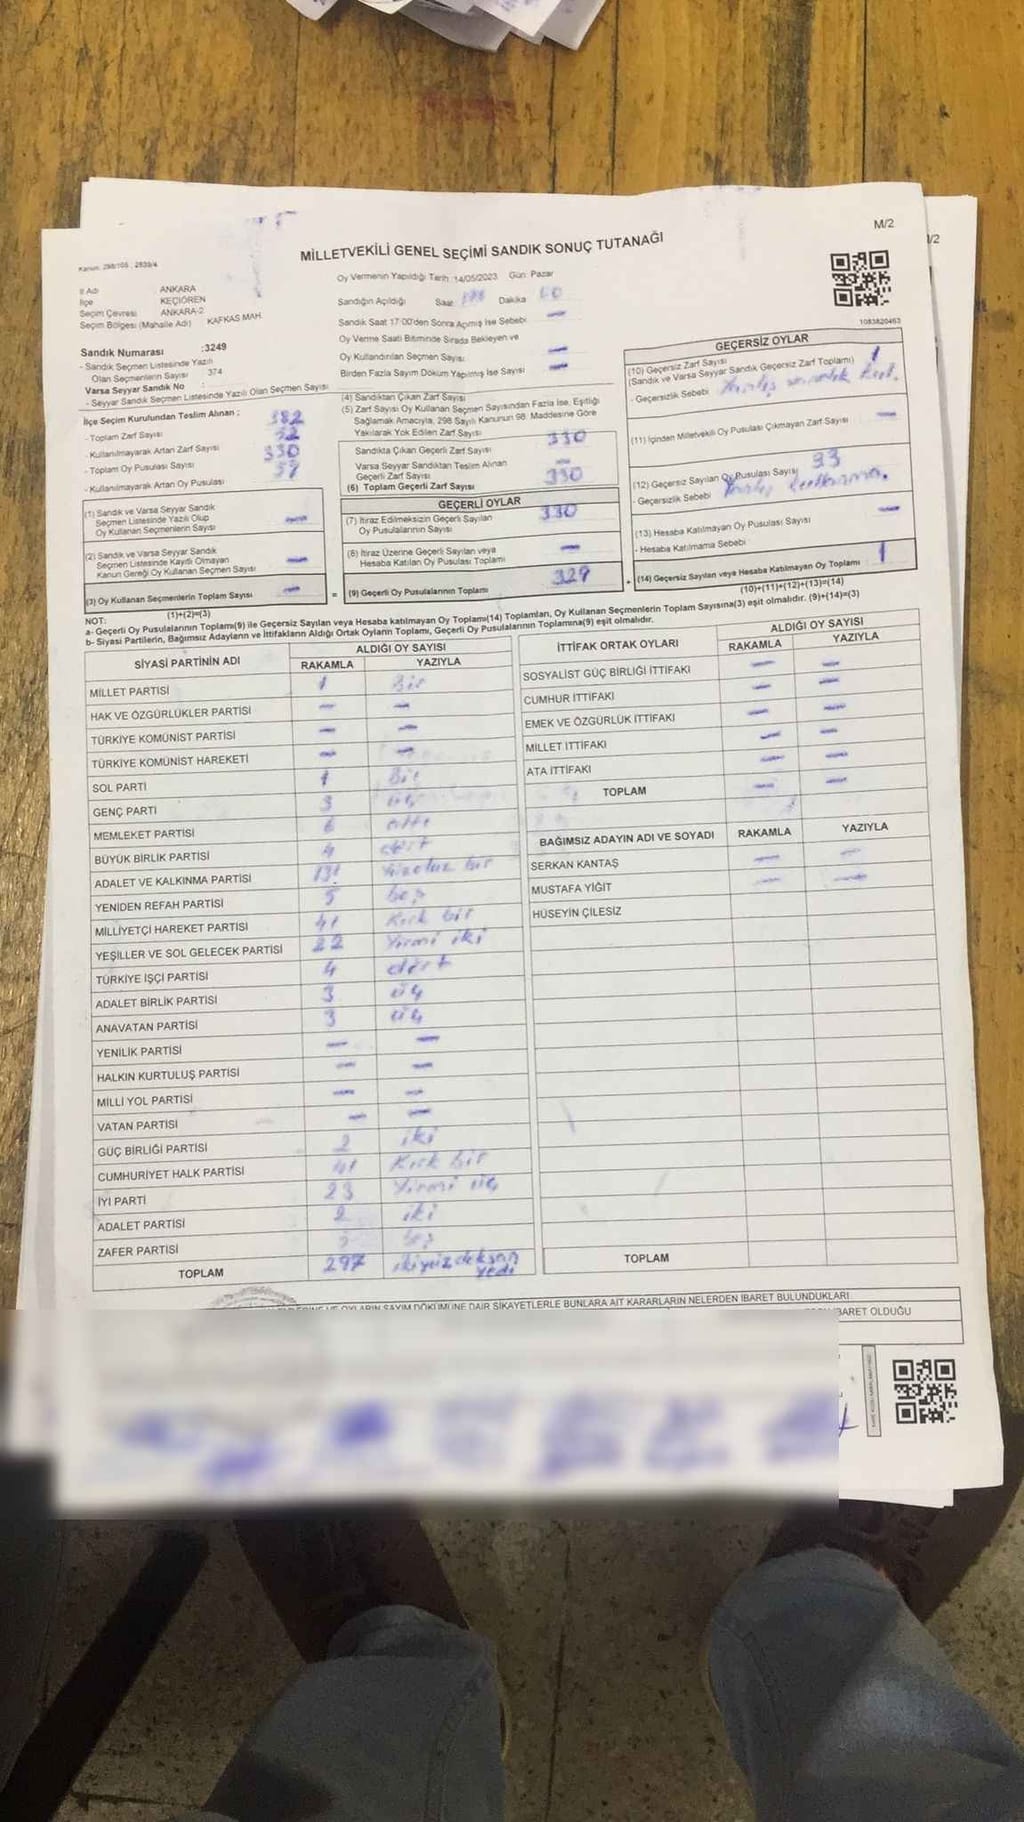 M/2
MİLLETVEKİLİ GENEL SEÇİMİ SANDIK SONUÇ TUTANAĞI
Kanun: 298/105 ; 2839/4
Oy Vermenin Yapıldığı Tarih :14/05/2023 Gün: Pazar
İl Adı ANKARA
İlçe KEÇİÖREN
Seçim Çevresi ANKARA-2
Seçim Bölgesi (Mahalle Adı) KAFKAS MAH.
Sandığın Açıldığı Saat Dakika
Sandık Saat 17:00'den Sonra Açmış İse Sebebi —
Oy Verme Saati Bitiminde Sırada Bekleyen ve
Oy Kullandırılan Seçmen Sayısı —
Birden Fazla Sayım Döküm Yapılmış İse Sayısı —
1083820463
Sandık Numarası :3249
- Sandık Seçmen Listesinde Yazılı
Olan Seçmenlerin Sayısı 374
Varsa Seyyar Sandık No :
- Seyyar Sandık Seçmen Listesinde Yazılı Olan Seçmen Sayısı
İlçe Seçim Kurulundan Teslim Alınan ;
- Toplam Zarf Sayısı 382
- Kullanılmayarak Artan Zarf Sayısı 52
- Toplam Oy Pusulası Sayısı 330
- Kullanılmayarak Artan Oy Pusulası
(1) Sandık ve Varsa Seyyar Sandık
Seçmen Listesinde Yazılı Olup
Oy Kullanan Seçmenlerin Sayısı —
(2) Sandık ve Varsa Seyyar Sandık
Seçmen Listesinde Kayıtlı Olmayan
Kanun Gereği Oy Kullanan Seçmen Sayısı —
(3) Oy Kullanan Seçmenlerin Toplam Sayısı —
(1)+(2)=(3)
(4) Sandıktan Çıkan Zarf Sayısı
(5) Zarf Sayısı Oy Kullanan Seçmen Sayısından Fazla İse, Eşitliği
Sağlamak Amacıyla, 298 Sayılı Kanunun 98. Maddesine Göre
Yakılarak Yok Edilen Zarf Sayısı
Sandıkta Çıkan Geçerli Zarf Sayısı 330
Varsa Seyyar Sandıktan Teslim Alınan
Geçerli Zarf Sayısı —
(6) Toplam Geçerli Zarf Sayısı 330
GEÇERLİ OYLAR
(7) İtiraz Edilmeksizin Geçerli Sayılan
Oy Pusulalarının Sayısı 330
(8) İtiraz Üzerine Geçerli Sayılan veya
Hesaba Katılan Oy Pusulası Toplamı —
= (9) Geçerli Oy Pusulalarının Toplamı 329
GEÇERSİZ OYLAR
(10) Geçersiz Zarf Sayısı 1
(Sandık ve Varsa Seyyar Sandık Geçersiz Zarf Toplamı)
- Geçersizlik Sebebi
(11) İçinden Milletvekili Oy Pusulası Çıkmayan Zarf Sayısı —
(12) Geçersiz Sayılan Oy Pusulası Sayısı 33
- Geçersizlik Sebebi
(13) Hesaba Katılmayan Oy Pusulası Sayısı —
- Hesaba Katılmama Sebebi
+ (14) Geçersiz Sayılan veya Hesaba Katılmayan Oy Toplamı 1
(10)+(11)+(12)+(13)=(14)
NOT:
a- Geçerli Oy Pusulalarının Toplamı(9) ile Geçersiz Sayılan veya Hesaba katılmayan Oy Toplamı(14) Toplamları, Oy Kullanan Seçmenlerin Toplam Sayısına(3) eşit olmalıdır. (9)+(14)=(3)
b- Siyasi Partilerin, Bağımsız Adayların ve İttifakların Aldığı Ortak Oyların Toplamı, Geçerli Oy Pusulalarının Toplamına(9) eşit olmalıdır.
SİYASİ PARTİNİN ADI ALDIĞI OY SAYISI
RAKAMLA YAZIYLA
MİLLET PARTİSİ 1 Bir
HAK VE ÖZGÜRLÜKLER PARTİSİ — —
TÜRKİYE KOMÜNİST PARTİSİ — —
TÜRKİYE KOMÜNİST HAREKETİ — —
SOL PARTİ 1 Bir
GENÇ PARTİ 3 üç
MEMLEKET PARTİSİ 6 altı
BÜYÜK BİRLİK PARTİSİ 4 dört
ADALET VE KALKINMA PARTİSİ 131 Yüzotuz bir
YENİDEN REFAH PARTİSİ 5 beş
MİLLİYETÇİ HAREKET PARTİSİ 41 Kırk bir
YEŞİLLER VE SOL GELECEK PARTİSİ 22 Yirmi iki
TÜRKİYE İŞÇİ PARTİSİ 4 dört
ADALET BİRLİK PARTİSİ 3 üç
ANAVATAN PARTİSİ 3 üç
YENİLİK PARTİSİ — —
HALKIN KURTULUŞ PARTİSİ — —
MİLLİ YOL PARTİSİ — —
VATAN PARTİSİ — —
GÜÇ BİRLİĞİ PARTİSİ 2 iki
CUMHURİYET HALK PARTİSİ 41 Kırk bir
İYİ PARTİ 23 Yirmi üç
ADALET PARTİSİ 2 iki
ZAFER PARTİSİ 5 beş
TOPLAM 297 ikiyüzdoksan yedi
İTTİFAK ORTAK OYLARI ALDIĞI OY SAYISI
RAKAMLA YAZIYLA
SOSYALİST GÜÇ BİRLİĞİ İTTİFAKI — —
CUMHUR İTTİFAKI — —
EMEK VE ÖZGÜRLÜK İTTİFAKI — —
MİLLET İTTİFAKI — —
ATA İTTİFAKI — —
TOPLAM — —
BAĞIMSIZ ADAYIN ADI VE SOYADI RAKAMLA YAZIYLA
SERKAN KANTAŞ — —
MUSTAFA YİĞİT — —
HÜSEYİN ÇİLESİZ
TOPLAM
OYLARIN SAYIM DÖKÜMÜNE DAİR ŞİKAYETLERLE BUNLARA AİT KARARLARIN NELERDEN İBARET BULUNDUKLARI
İBARET OLDUĞU